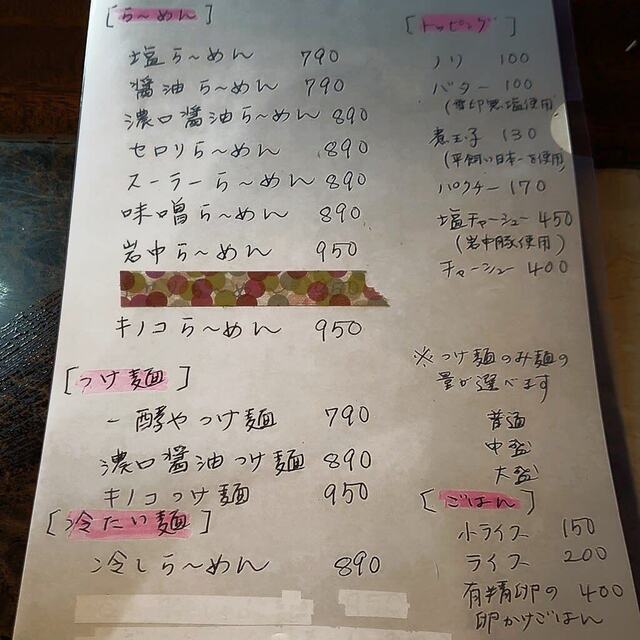 [らーめん]
塩らーめん 790
醤油らーめん 790
濃口醤油らーめん 890
セロリらーめん 890
スーラーらーめん 890
味噌らーめん 890
岩中らーめん 950
キノコらーめん 950
[つけ麺]
一酵やつけ麺 790
濃口醤油つけ麺 890
キノコつけ麺 950
[冷たい麺]
冷しらーめん 890
[トッピング]
ノリ 100
バター 100
(雪印無塩使用)
煮玉子 130
(平飼い日本一を使用)
パクチー 170
塩チャーシュー 450
(岩中豚使用)
チャーシュー 400
※つけ麺のみ麺の
量が選べます
普通
中盛
大盛
[ごはん]
小ライス 150
ライス 200
有精卵の 400
卵かけごはん